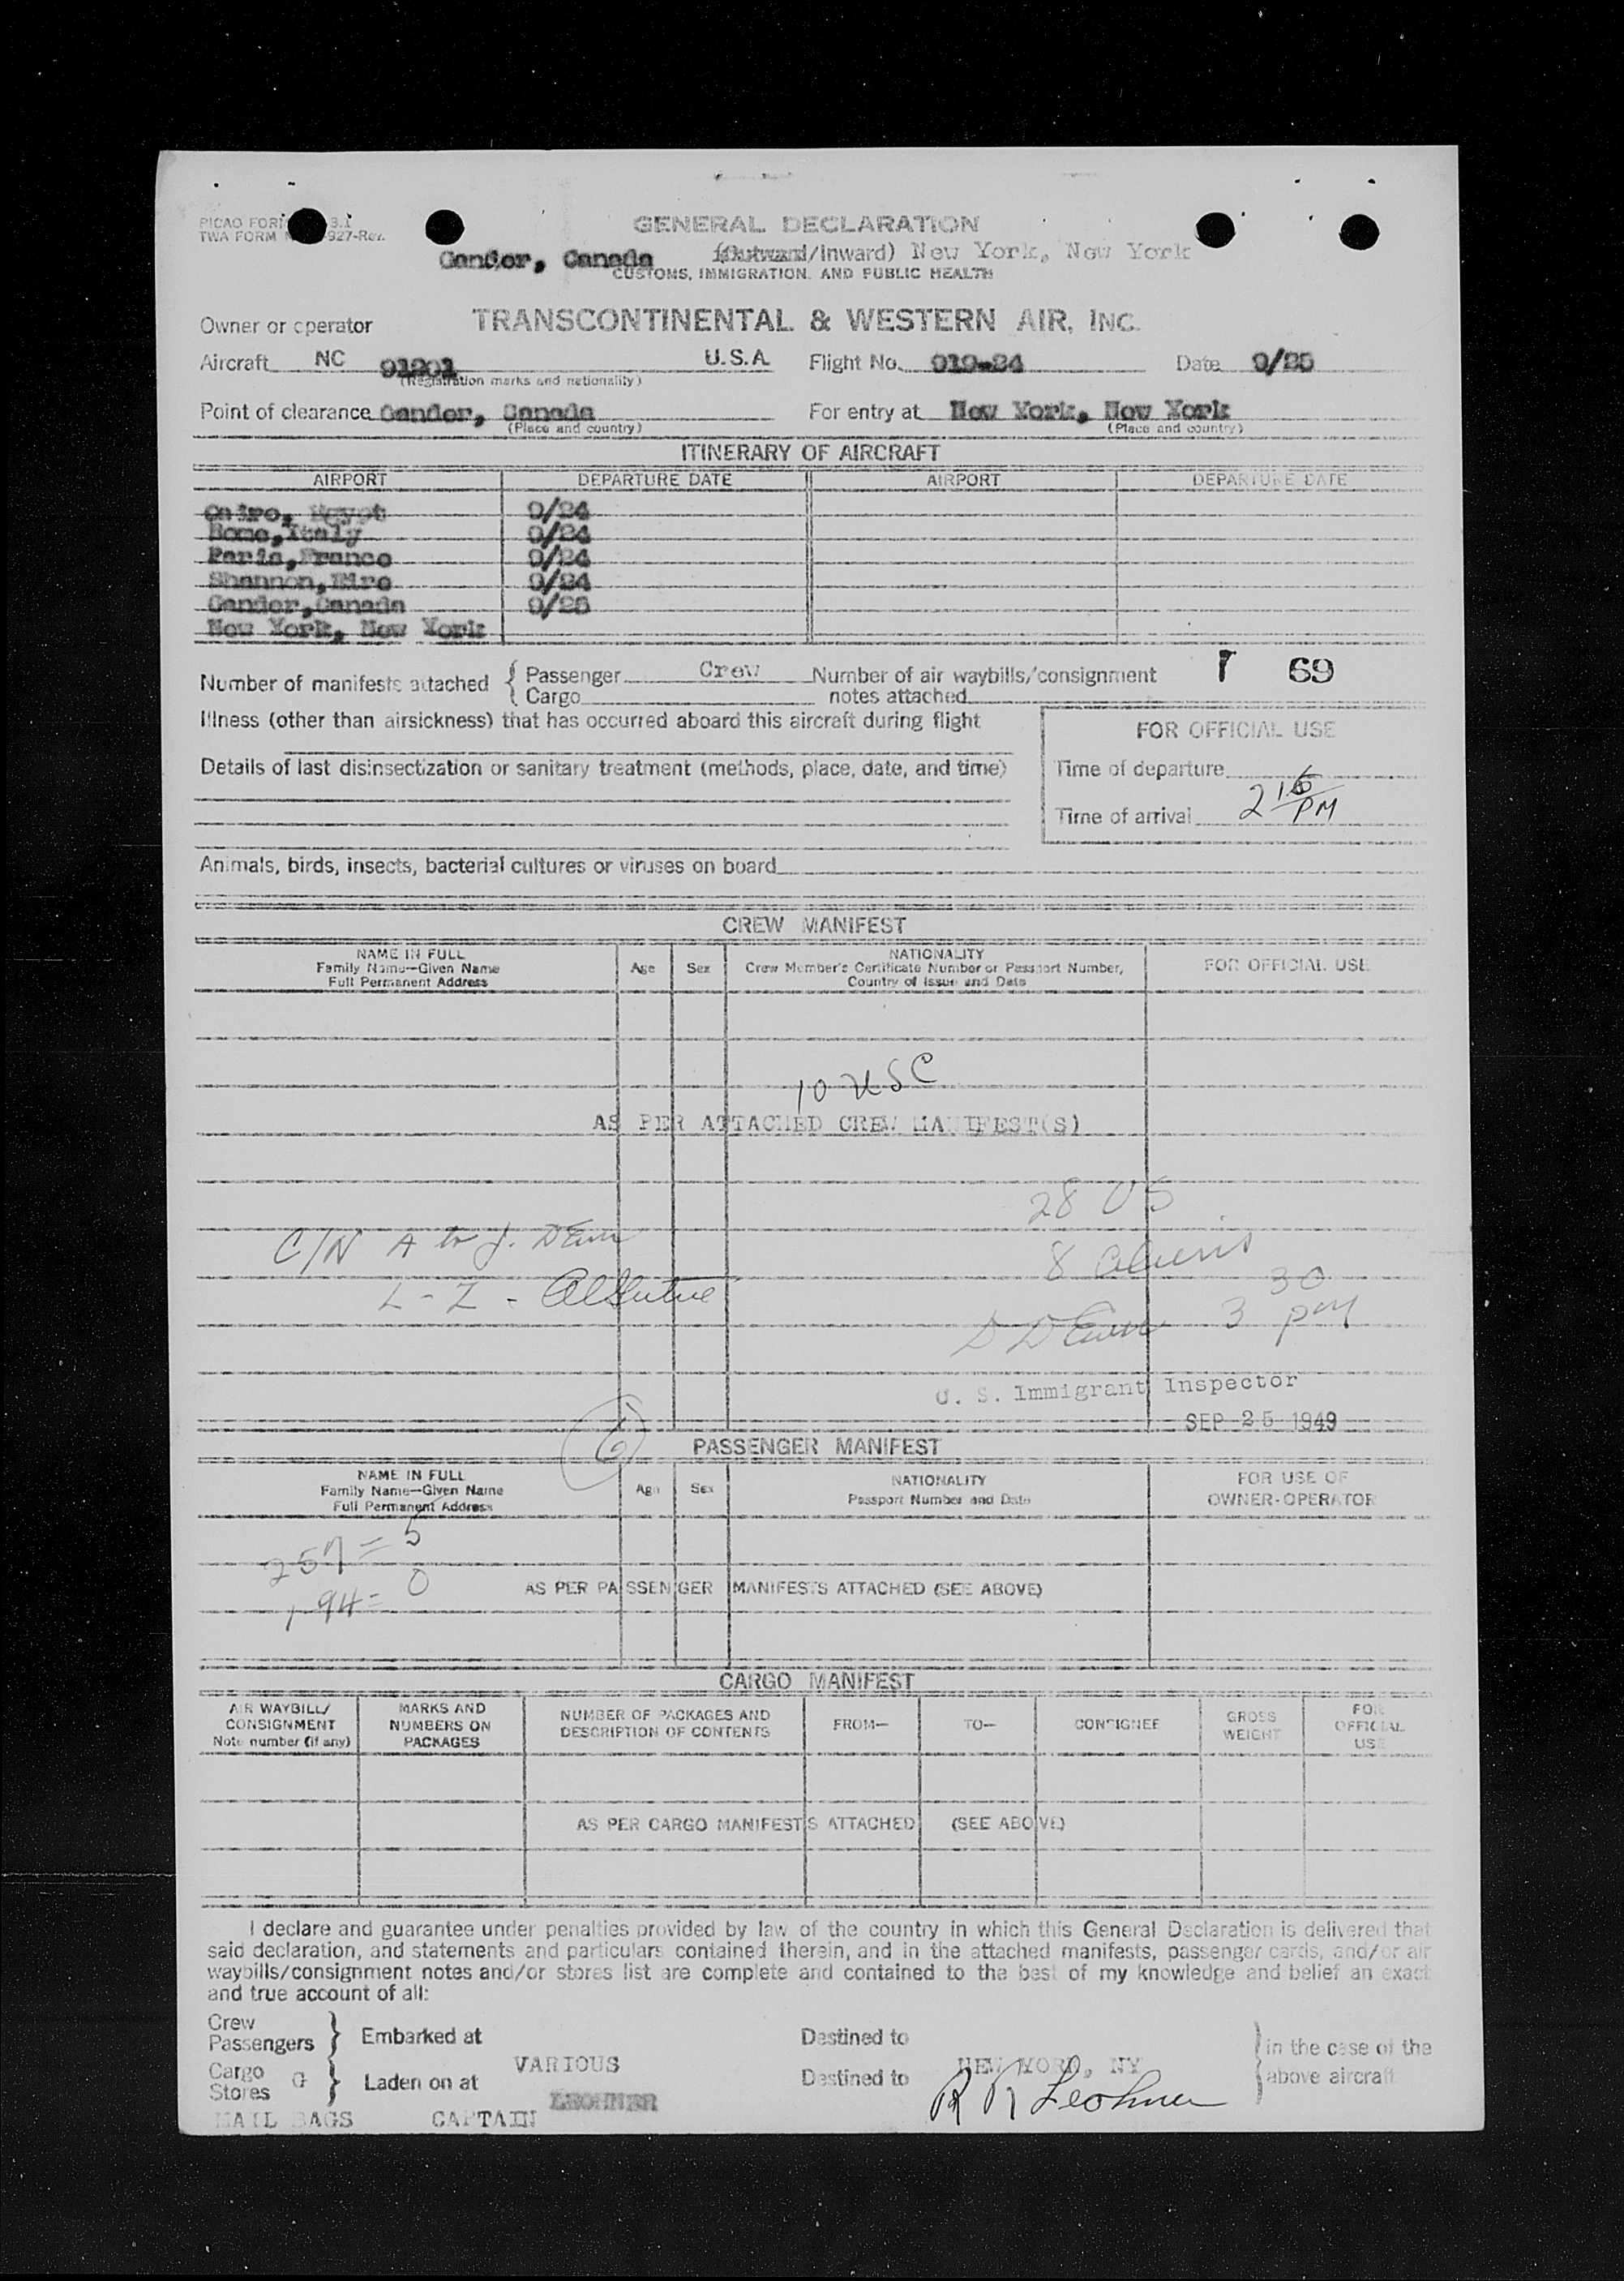 PICAO FORM 3.1
TWA FORM -927-Rev.
GENERAL DECLARATION
Gander, Canada (Outward/Inward) New York, New York
CUSTOMS, IMMIGRATION, AND PUBLIC HEALTH
Owner or operator TRANSCONTINENTAL & WESTERN AIR, INC.
Aircraft NC 91201 U.S.A. Flight No. 919-24 Date 9/25
(Registration marks and nationality)
Point of clearance Gander, Canada For entry at New York, New York
(Place and country) (Place and country)
ITINERARY OF AIRCRAFT
AIRPORT DEPARTURE DATE AIRPORT DEPARTURE DATE
Cairo, Egypt 9/24
Rome, Italy 9/24
Paris, France 9/24
Shannon, Eire 9/24
Gander, Canada 9/25
New York, New York
Number of manifests attached { Passenger Crew Number of air waybills/consignment 69
Cargo notes attached
Illness (other than airsickness) that has occurred aboard this aircraft during flight
FOR OFFICIAL USE
Details of last disinsectization or sanitary treatment (methods, place, date, and time)
Time of departure
Time of arrival 2 15 PM
Animals, birds, insects, bacterial cultures or viruses on board
CREW MANIFEST
NAME IN FULL
Family Name—Given Name
Full Permanent Address
Age Sex
NATIONALITY
Crew Member's Certificate Number or Passport Number,
Country of Issue and Date
FOR OFFICIAL USE
10 USC
AS PER ATTACHED CREW MANIFEST(S)
28 US
C/N A to J.
8 Aliens
L-Z -
3 30 pm
U. S. Immigrant Inspector
SEP 25 1949
6
PASSENGER MANIFEST
NAME IN FULL
Family Name—Given Name
Full Permanent Address
Age Sex
NATIONALITY
Passport Number and Date
FOR USE OF
OWNER-OPERATOR
257 = 5
194 = 0
AS PER PASSENGER MANIFESTS ATTACHED (SEE ABOVE)
CARGO MANIFEST
AIR WAYBILL/
CONSIGNMENT
Note number (if any)
MARKS AND
NUMBERS ON
PACKAGES
NUMBER OF PACKAGES AND
DESCRIPTION OF CONTENTS
FROM— TO— CONSIGNEE
GROSS
WEIGHT
FOR
OFFICIAL
USE
AS PER CARGO MANIFESTS ATTACHED (SEE ABOVE)
I declare and guarantee under penalties provided by law of the country in which this General Declaration is delivered that
said declaration, and statements and particulars contained therein, and in the attached manifests, passenger cards, and/or air
waybills/consignment notes and/or stores list are complete and contained to the best of my knowledge and belief an exact
and true account of all:
Crew
Passengers } Embarked at Destined to } in the case of the
VARIOUS NEW YORK, NY
Cargo
Stores G } Laden on at Destined to above aircraft
LEOHNER R R Leohner
MAIL BAGS CAPTAIN